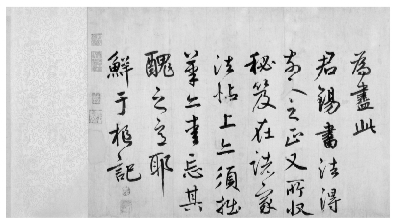 為盡此
君錫書法得
前人之正又所收
秘笈在諸家
法帖上上須拙
筆亦書忘其
醜之意耶
鮮于樞記